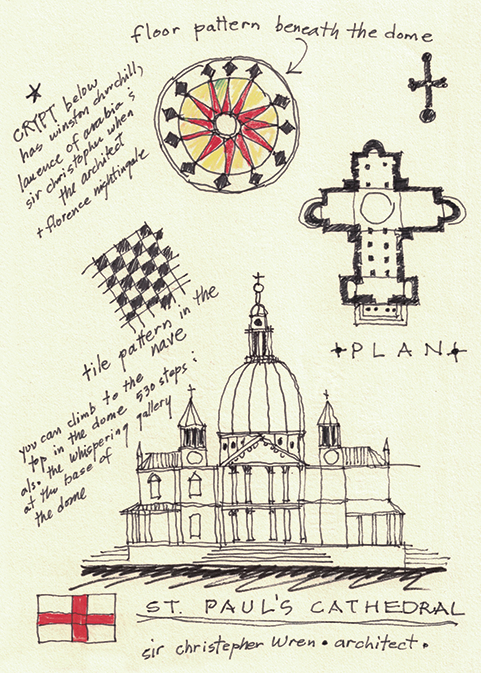 floor pattern beneath the dome
CRYPT below
has winston churchill,
lawrence of arabia &
sir christopher wren
the architect
+ florence nightingale
tile pattern in the
nave
PLAN
you can climb to the
top in the dome 530 steps;
also the whispering gallery
at the base of
the dome
ST. PAUL'S CATHEDRAL
sir christopher Wren • architect •